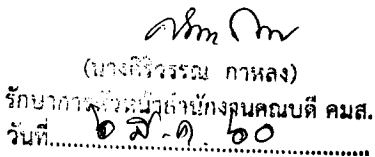 (นางศิริวรรณ กาหลง)
รักษาการหัวหน้าสำนักงานคณบดี คมส.
วันที่ ๖ ส.ค. ๖๐